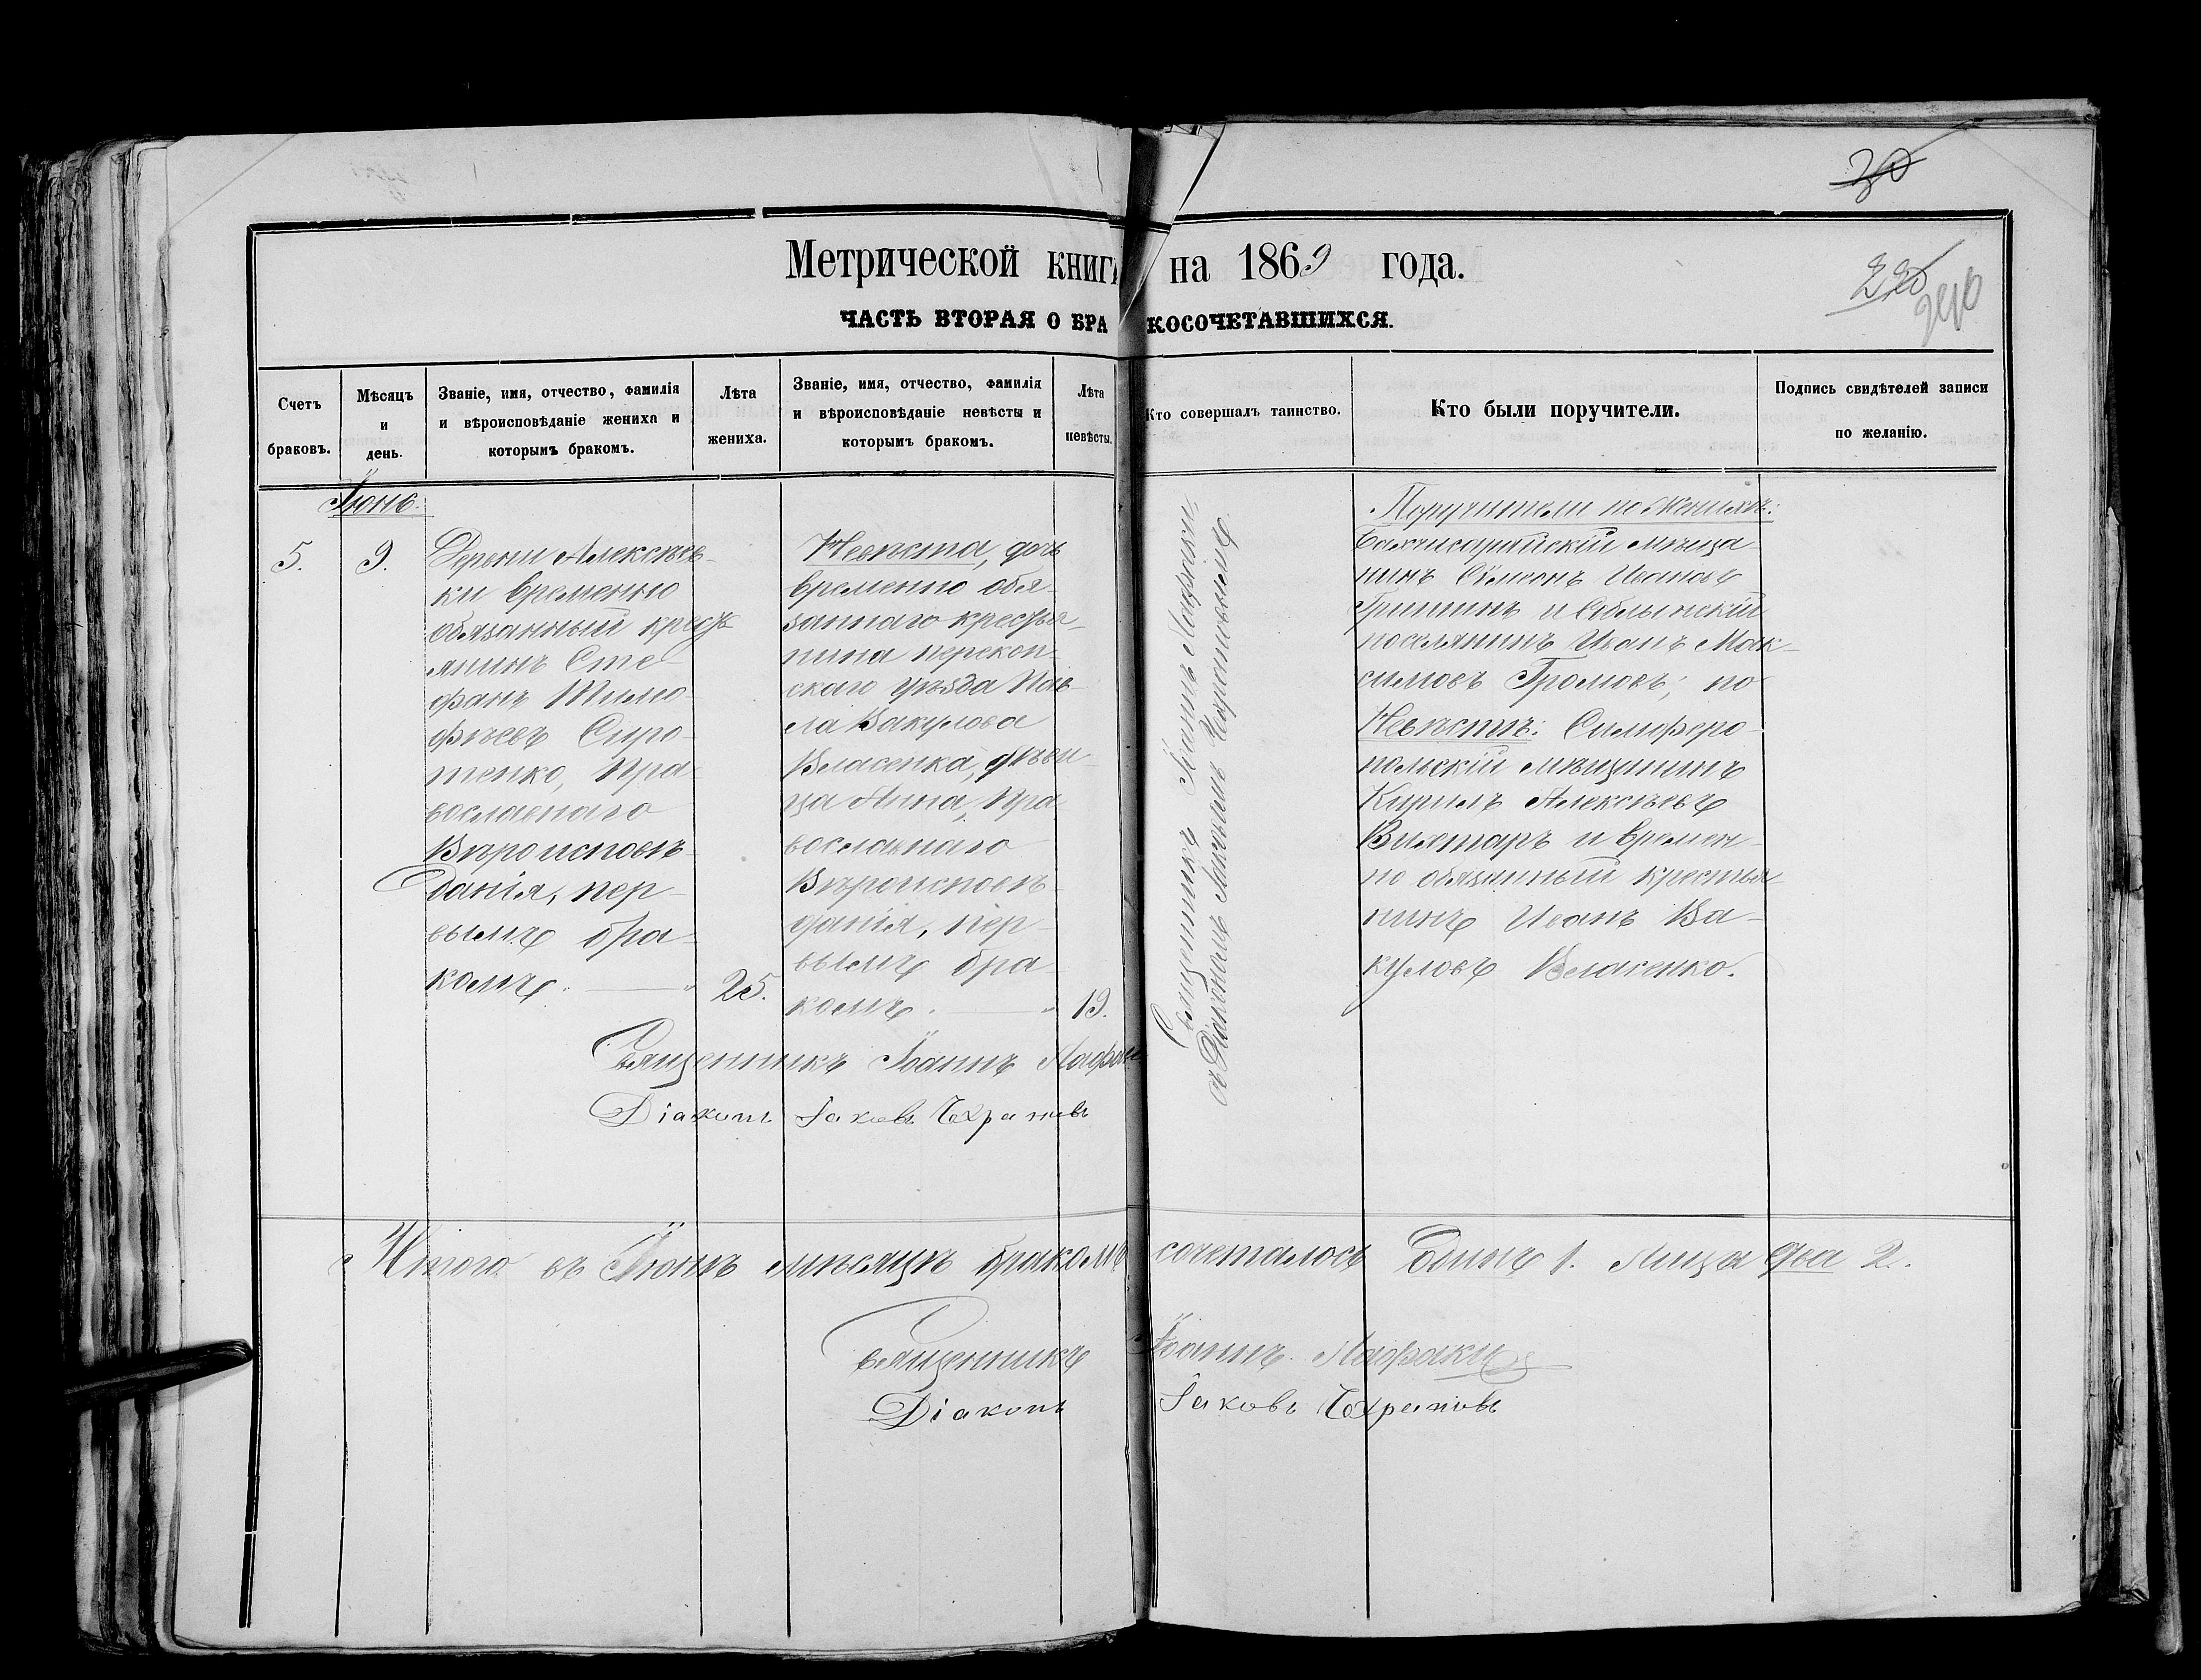 30
Метрической книги на 1869 года.
220
240
ЧАСТЬ ВТОРАЯ О БРАКОСОЧЕТАВШИХСЯ.
Счетъ браковъ.
Мѣсяцъ и день.
Званіе, имя, отчество, фамилія
и вѣроисповѣданіе жениха и
которымъ бракомъ.
Лѣта жениха.
Званіе, имя, отчество, фамилія
и вѣроисповѣданіе невѣсты и
которымъ бракомъ.
Лѣта невѣсты.
Кто совершалъ таинство.
Кто были поручители.
Подпись свидѣтелей записи
по желанію.
Іюнь.
5. 9.
Деревни Алексѣев-
ки временно
обязанный кресть
янинъ Сте-
фанъ Тимо-
фѣевъ Сиро-
тенко, Пра-
вославнаго
Вѣроисповѣ-
данія, пер-
вымъ бра-
комъ.
25.
Невѣста, дчь
временно обя-
заннаго крестья-
нина перекоп-
скаго уѣзда Пав-
ла Вакулова
Власенка, дѣви-
ца Анна, Пра-
вославнаго
Вѣроисповѣ-
данія, пер-
вымъ бра-
комъ.
19.
Священникъ Іоаннъ Лафаки,
съ Діакономъ Іаковомъ
Поручители по Женихѣ:
Бахчисарайскій мѣща-
нинъ Сѵмеонъ Ивановъ
Гришинъ и
поселянинъ Иванъ Мак-
симовъ Громовъ; по
Невѣстѣ: Симферо-
польскій мѣщанинъ
Кирилъ Алексѣевъ
и времен-
но обязанный крестья-
нинъ Иванъ Ва-
куловъ Власенко.
Священникъ Іоаннъ Лафаки
Діаконъ Іаковъ
Итого въ Іюнѣ мѣсяцѣ бракомъ сочеталось Одинъ 1. Лица два 2.
Священникъ Іоаннъ Лафаки
Діаконъ Іаковъ